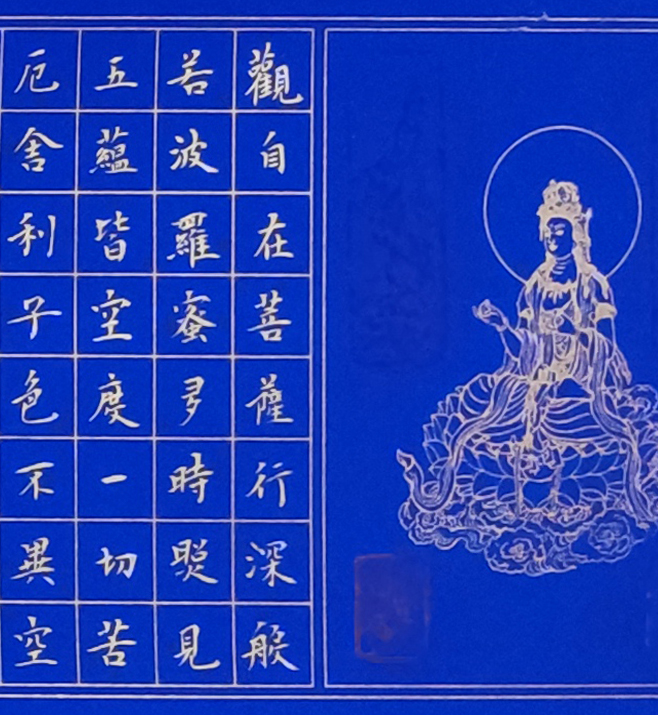 觀自在菩薩行深般
若波羅蜜多時照見
五蘊皆空度一切苦
厄舍利子色不異空